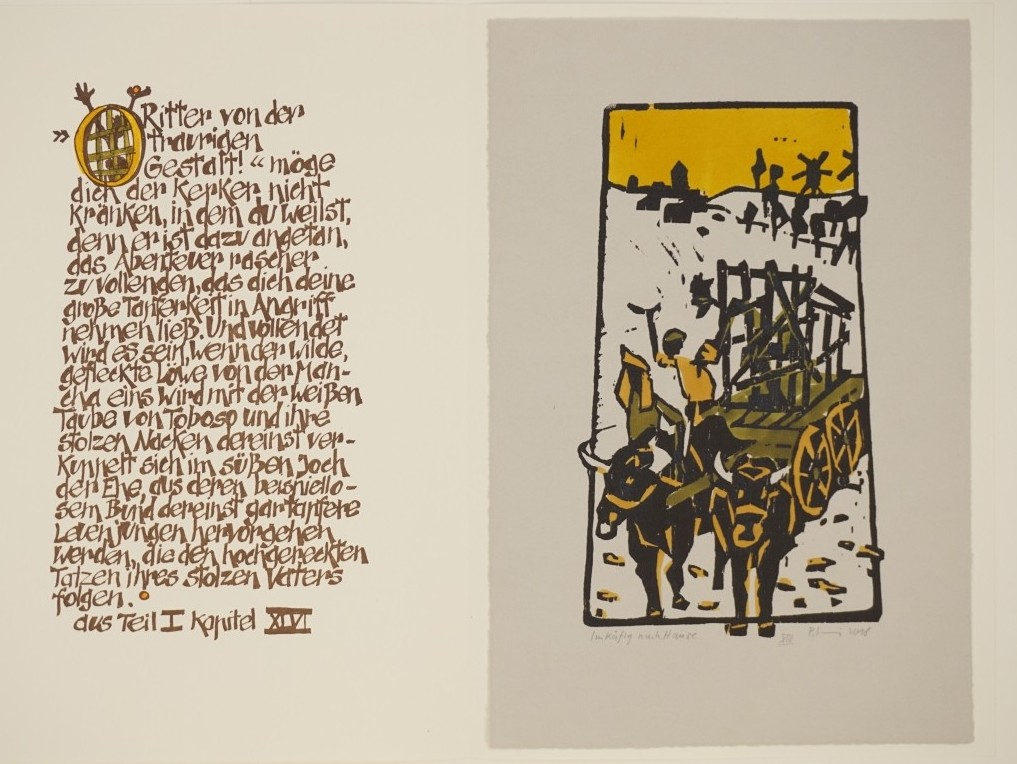 »O Ritter von der
traurigen
Gestalt!“ möge
dich der Kerker nicht
kränken, in dem du weilst,
denn er ist dazu angetan,
das Abenteuer rascher
zu vollenden, das dich deine
große Tapferkeit in Angriff
nehmen ließ. Und vollendet
wird es sein, wenn der wilde,
gefleckte Löwe von der Man-
cha eins wird mit der weißen
Taube von Toboso und ihre
stolzen Nacken dereinst ver-
kuppelt sich im süßen Joch
der Ehe, aus deren beispiello-
sem Bund dereinst gar tapfere
Leuenjungen hervorgehen
werden, die den hochgereckten
Tatzen ihres stolzen Vaters
folgen.
aus Teil I Kapitel XLVI
Im Käfig nach Hause